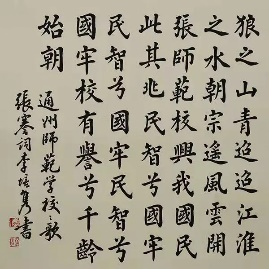 狼之山青迢迢江淮
之水朝宗遙風雲開
張師範校興我國民
此其兆民智兮國牢
民智兮國牢民智兮
國牢校有譽兮千齡
始朝
通州師範學校之歌
張謇詞李培隽書